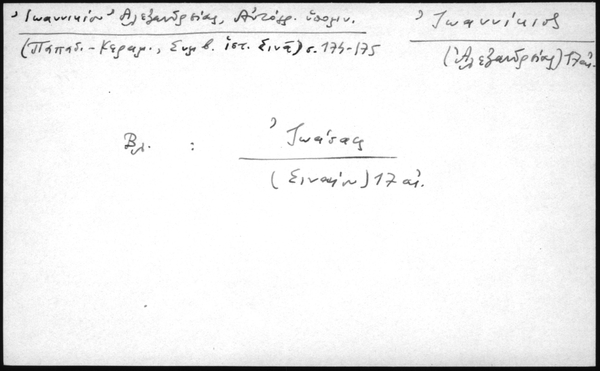 Ἰωαννικίου Ἀλεξανδρείας, Αὐτόγρ. ὑπομν.
(Παπαδ.-Κεραμ., Συμβ. ἱστ. Σινᾶ) σ. 174-175
Ἰωαννίκιος
(Ἀλεξανδρείας) 17 αἰ.
Βλ. : Ἰωάσαφ
(Σιναίου) 17 αἰ.